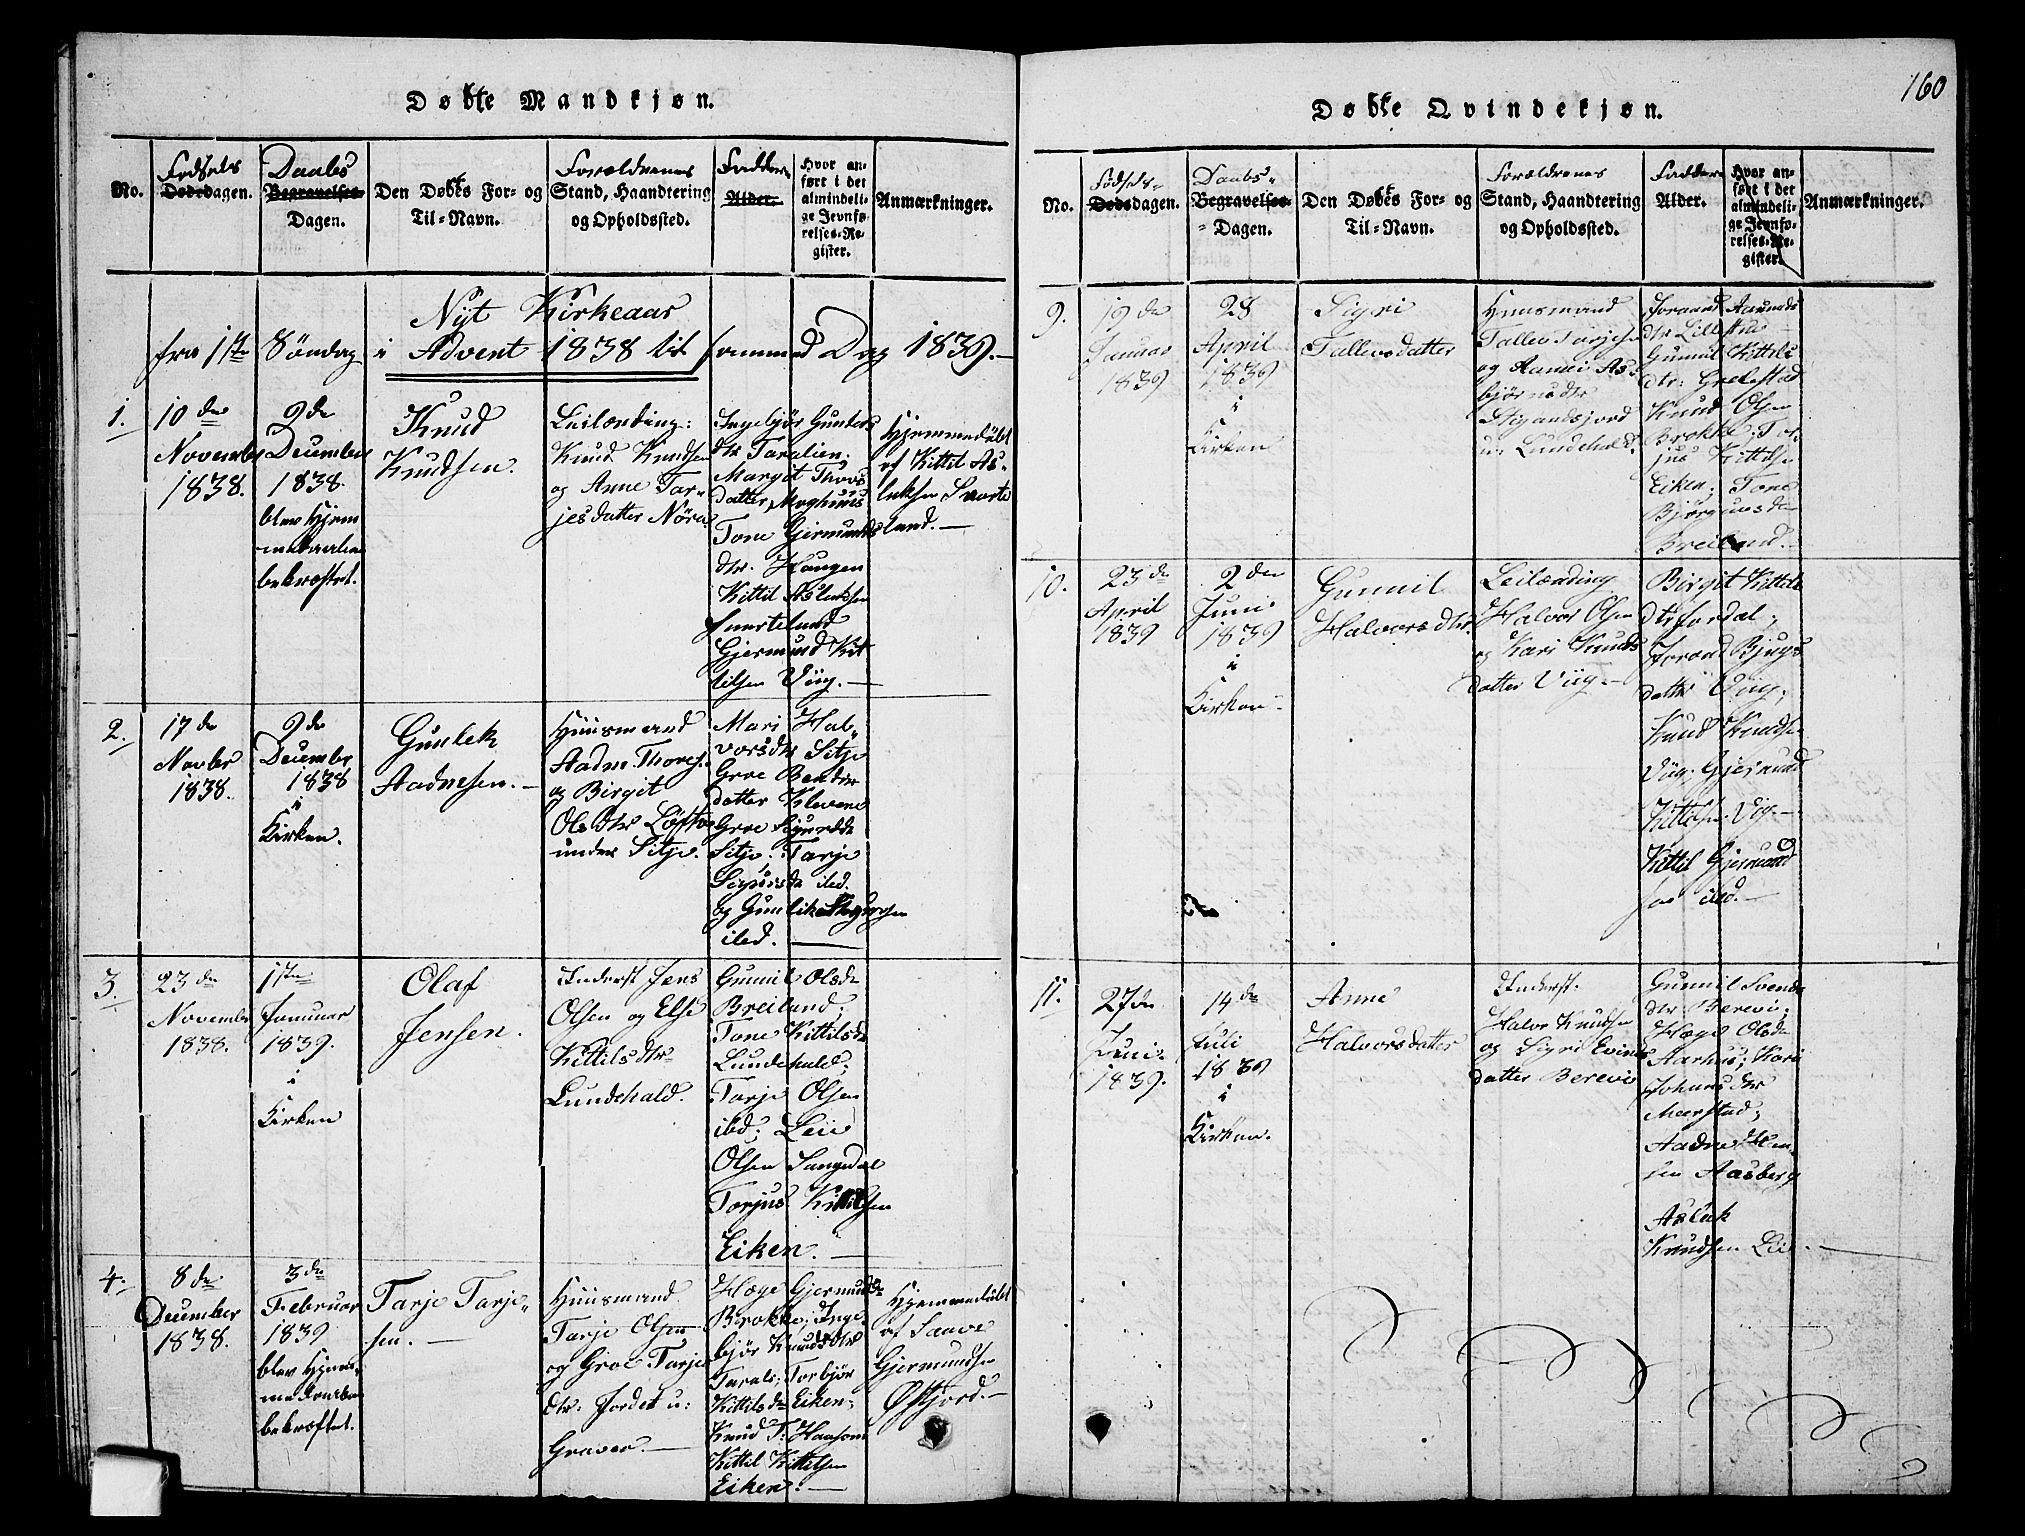 Døbte Mandkjøn.
No.
Fødsels
Dødsdagen.
Daabs
Begravelses-
Dagen.
Den Døbtes For- og
Til-Navn.
Forældrenes
Stand, Haandtering
og Opholdssted.
Fadder
Alder.
Hvor an-
ført i det
almindeli-
ge Jevnfø-
relses-Re-
gister.
Anmærkninger.
Nyt Kirkeaar
fra 1ste Søndag i Advent 1838 til samme Dag 1839.
1.
10de
November
1838.
9de
December
1838
blev Hjem-
medaaben
bekræftet.
Knud
Knudsen.
Leilænding:
Knud Knudsen
og Anne Tar-
jesdatter
Ingebjør Gunders
dtr Taralien.
Margit
datter
Tone Gjermunds
dtr. Haugen
Kittil Aslaksen
Svarteland
Gjermund Kit
tilsen Viig.
Hjemmedøbt
af Kittil As-
laksen Svarte
land.
2.
17de
Novber
1838.
9de
December
1838
i
Kirken.
Gunlek
Aadnesen.
Huusmand
Aadne Thores.
og Birgit
Olsdtr
under Sitje.
Mari Hal-
vorsdtr Sitje
Groe
datter Klevene
Groe
Sitje; Tarje
ibd.
og
ibd.
3.
23de
November
1838.
1ste
Januar
1839.
i
Kirken
Olaf
Jensen.
Inderst Jens
Olsen og Else
Kittilsdtr
Lundehald.
Gunnil Olsdr
Breiland;
Tone Kittilsdr
Lundehald;
Tarje Olsen
ibd; Leiv
Olsen Langedal
Torjus Kittilsen
Eiken.
4.
8de
December
1838.
3de
Februar
1839
blev Hjem-
medaaben
bekræftet.
Tarje Tarje-
sen.
Huusmand
Tarje Olsen
og Groe Tarjes
dtr. Jordet u:
Graver.
Hæge Gjermundsdr
Brokke; Inge-
bjør Knudsdtr
Torbjør
Kittilsdr Eiken;
Knud T: Haasom
Kittil Kittilsen
Eiken.
Hjemmedøbt
af Saave
Gjermundsen
Øfsjord.
160
Døbte Qvindekjøn.
No.
Fødsels-
Dødsdagen.
Daabs-
Begravelses-
Dagen.
Den Døbtes For- og
Til-Navn.
Forældrenes
Stand, Haandtering
og Opholdssted.
Fadder
Alder.
Hvor an-
ført i det
almindeli-
ge Jevnfø-
relses-Re-
gister.
Anmærkninger.
9.
19de
Januar
1839
28
April
1839
i
Kirken
Sigri
Tallevsdatter
Huusmand
Tallev Tarjesen
og Aanni As-
bjørnsdtr
u. Lundehald.
Jorand Aanunds
dtr
Gunnil Kittils
dtr:
Knud Olsen
Brokke; Tor-
jus Kittilsen
Eiken; Tone
Bjørgumsdr
Breiland.
10.
23de
April
1839
2den
Juni
1839
i
Kirken.
Gunnil
Halvorsdtr.
Leilænding
Halvor Olsen
og Kari Knuds
datter Viig.
Birgit Kittils
dtr
Jorand
datter Viig;
Knud Knudsen
Viig; Gjermund
Kittilsen Viig.
Kittil Gjermund
sen ibd.
11.
27de
Juni
1839.
14de
Juli
1839
i
Kirken.
Anne
Halvorsdatter
Inderst.
Halvor Knudsen
og Sigri Evinds
datter Berevi
Gunnil Svends
dtr Berevi;
Hæge Olsdr
Aarhus; Kari
Johansdtr
Meerstad;
Aadne
sen Aasberg
Aslak
Knudsen Lii.